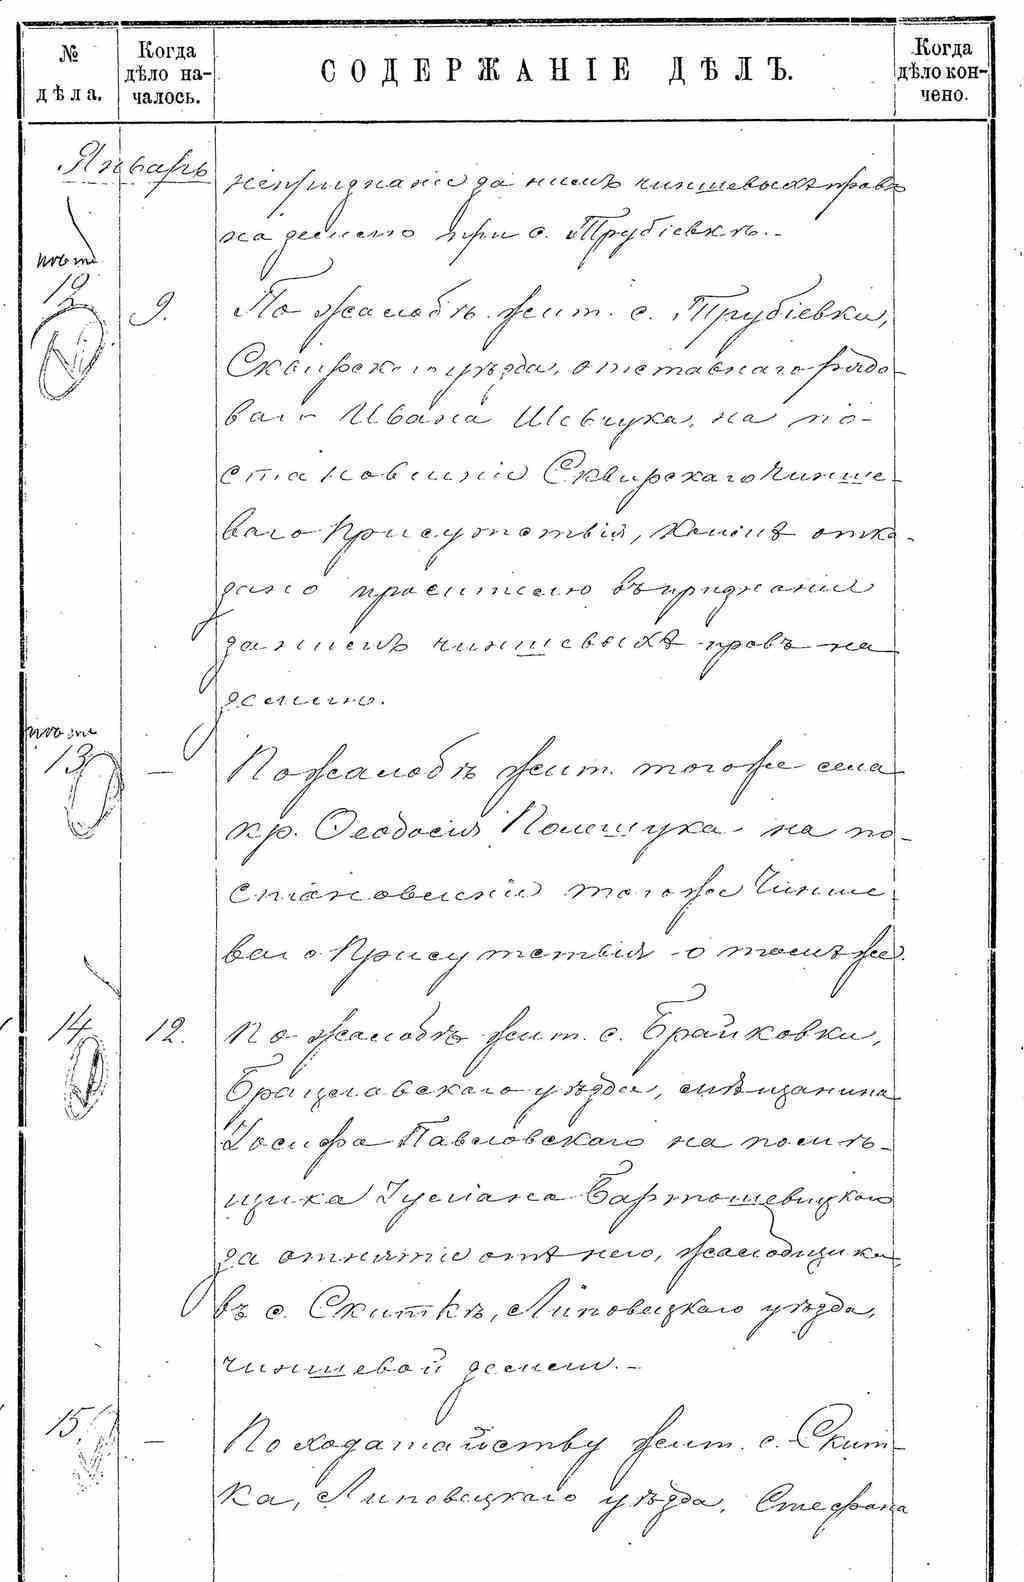 № дѣла.
Когда дѣло началось.
СОДЕРЖАНІЕ ДѢЛЪ.
Когда дѣло кончено.
Январь
непризнаніе за нимъ чиншевыхъ правъ
на землю при с. Трубіевкѣ.-
12
9.
По жалобѣ жит. с. Трубіевки,
Сквирскаго уѣзда, отставнаго рядо-
ваго Ивана Шевчука, на по-
становленіе Сквирскаго Чинше-
ваго Присутствія, коимъ отка-
зано просителю въ признаніи
за нимъ чиншевыхъ правъ на
землю.
13
—
По жалобѣ жит. тогоже села
кр. Ѳеодосія Полещука на по-
становленіе тогоже Чинше-
ваго Присутствія о томъ же.
14
12.
По жалобѣ жит. с. Брайковки,
Брацлавскаго уѣзда, мѣщанина
Іосифа Павловскаго на помѣ-
щика Іуліана Бартошевицкаго
за отнятіе отъ него, жалобщика,
въ с. Скиткѣ, Липовецкаго уѣзда,
чиншевой земли.-
15
—
По ходатайству жит. с. Скит-
ка, Липовецкаго уѣзда, Стефана